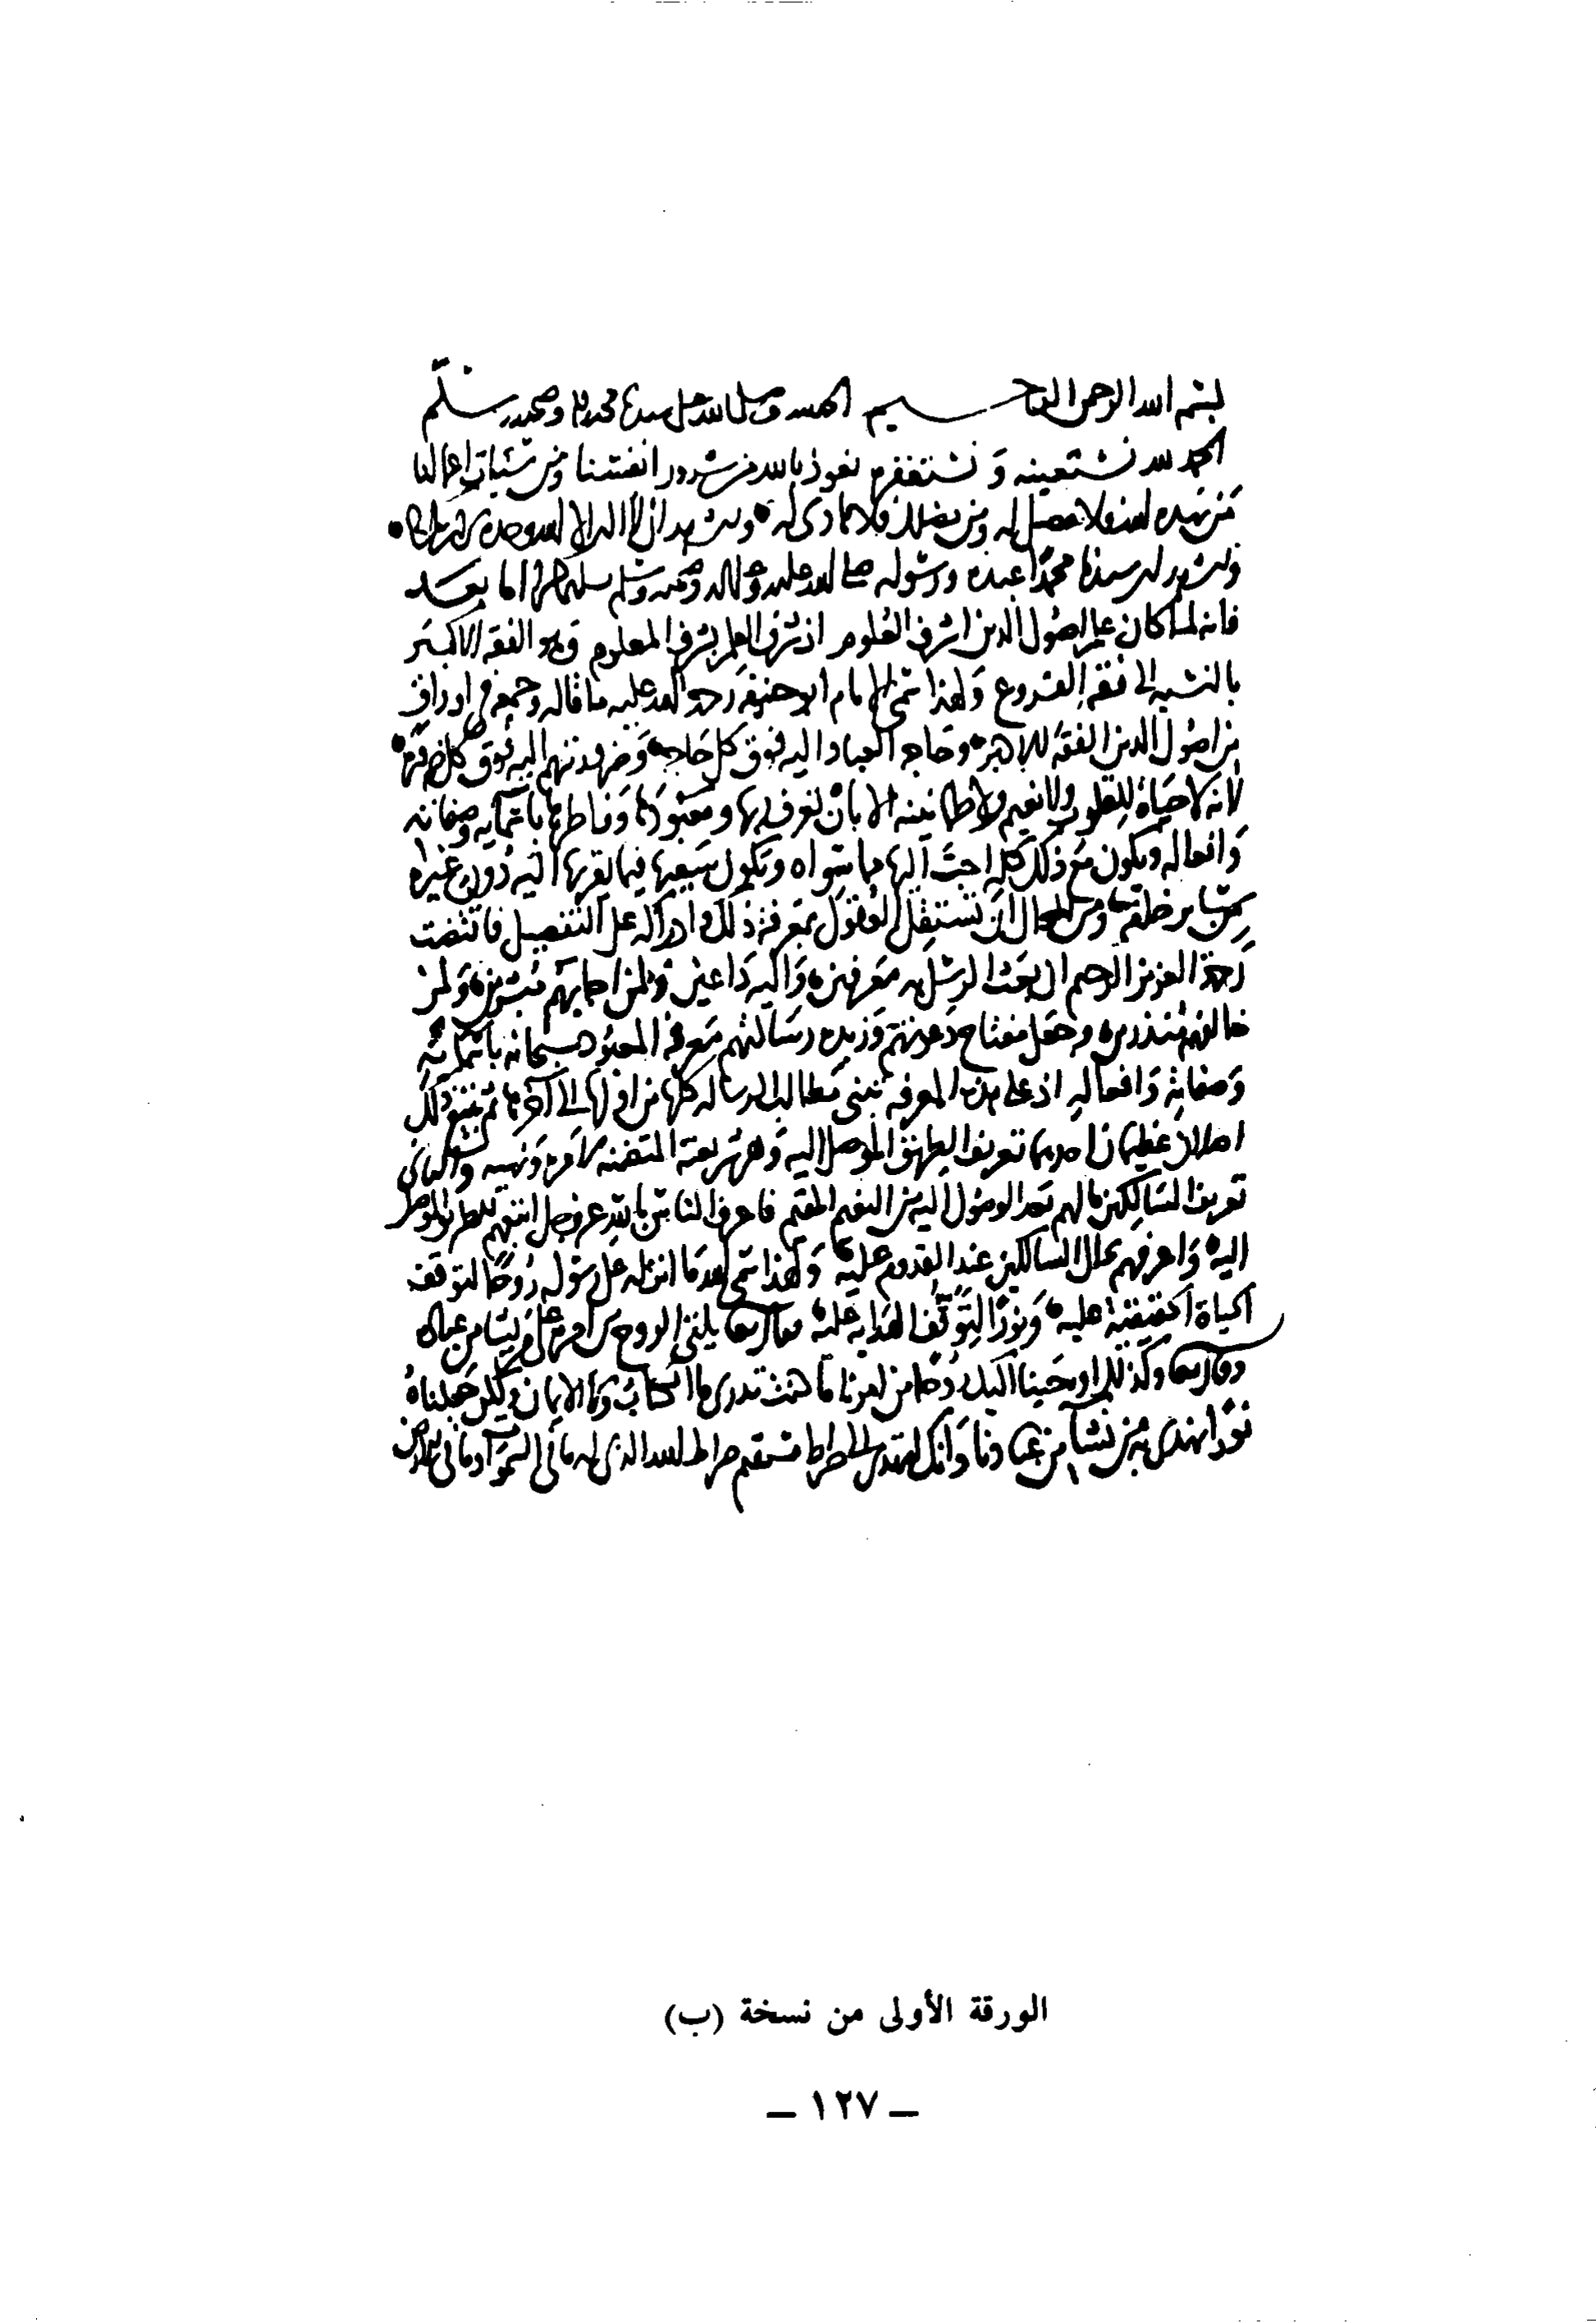 بسم الله الرحمن الرحيم الحمد لله وصلى الله على سيدنا محمد واله وصحبه وسلم
الحمد لله نستعينه ونستغفره نعوذ بالله من شرور انفسنا ومن سيئات اعمالنا
من يهده الله فلا مضل له ومن يضلل فلا هادى له ونشهد ان لا اله الا الله وحده لا شريك له
ونشهد ان سيدنا محمدا عبده ورسوله صلى الله عليه وعلى اله وصحبه وسلم تسليما كثيرا اما بعد
فانه لما كان علم اصول الدين اشرف العلوم اذ شرف العلم بشرف المعلوم وهو الفقه الاكبر
بالنسبه الى فقه الفروع ولهذا سمى الامام ابو حنيفه رحمة الله عليه ما قاله وجمعه فى اوراق
من اصول الدين الفقه الاكبر وحاجه العباد اليه فوق كل حاجه وضرورتهم اليه فوق كل ضرورة
لانه لا حياة للقلوب ولا نعيم ولا طمانينه الا بان تعرف ربها ومعبودها وفاطرها باسمايه وصفاته
وافعاله ويكون مع ذلك كله احب اليها مما سواه ويكون سعيها فيما يقربها اليه دون غيره
من سائر خلقه ومن المحال ان تستقل العقول بمعرفة ذلك وادراكه على التفصيل فاقتضت
رحمة العزيز الرحيم ان بعث الرسل به معرفين واليه داعين ولمن اجابهم مبشرين ولمن
خالفهم منذرين وجعل مفتاح دعوتهم وزبده رسالتهم معرفة المعبود سبحانه باسمائه
وصفاته وافعاله اذ على هذه المعرفه تبنى مطالب الرساله كلها من اولها الى اخرها ثم يتبع ذلك
اصلان عظيمان احدهما تعريف الطريق الموصل اليه وهى شريعته المتضمنه لامره ونهيه والثانى
تعريف السالكين ما لهم بعد الوصول اليه من النعيم المقيم فاعرف الناس بالله عز وجل اتبعهم للطريق الموصل
اليه واعرفهم بحال السالكين عند القدوم عليه ولهذا سمى الله ما انزله على رسوله روحا لتوقف
الحياة الحقيقية عليه ونورا لتوقف الهدايه عليه فقال تعالى يلقى الروح من امره على من يشا من عباده
وقال تعالى وكذلك اوحينا اليك روحا من امرنا ما كنت تدرى ما الكتاب ولا الايمان ولكن جعلناه
نورا نهدى به من نشا من عبادنا وانك لتهدى الى صراط مستقيم صراط الله الذى له ما فى السموات وما فى الارض
الورقة الأولى من نسخة (ب)
– ١٢٧ –